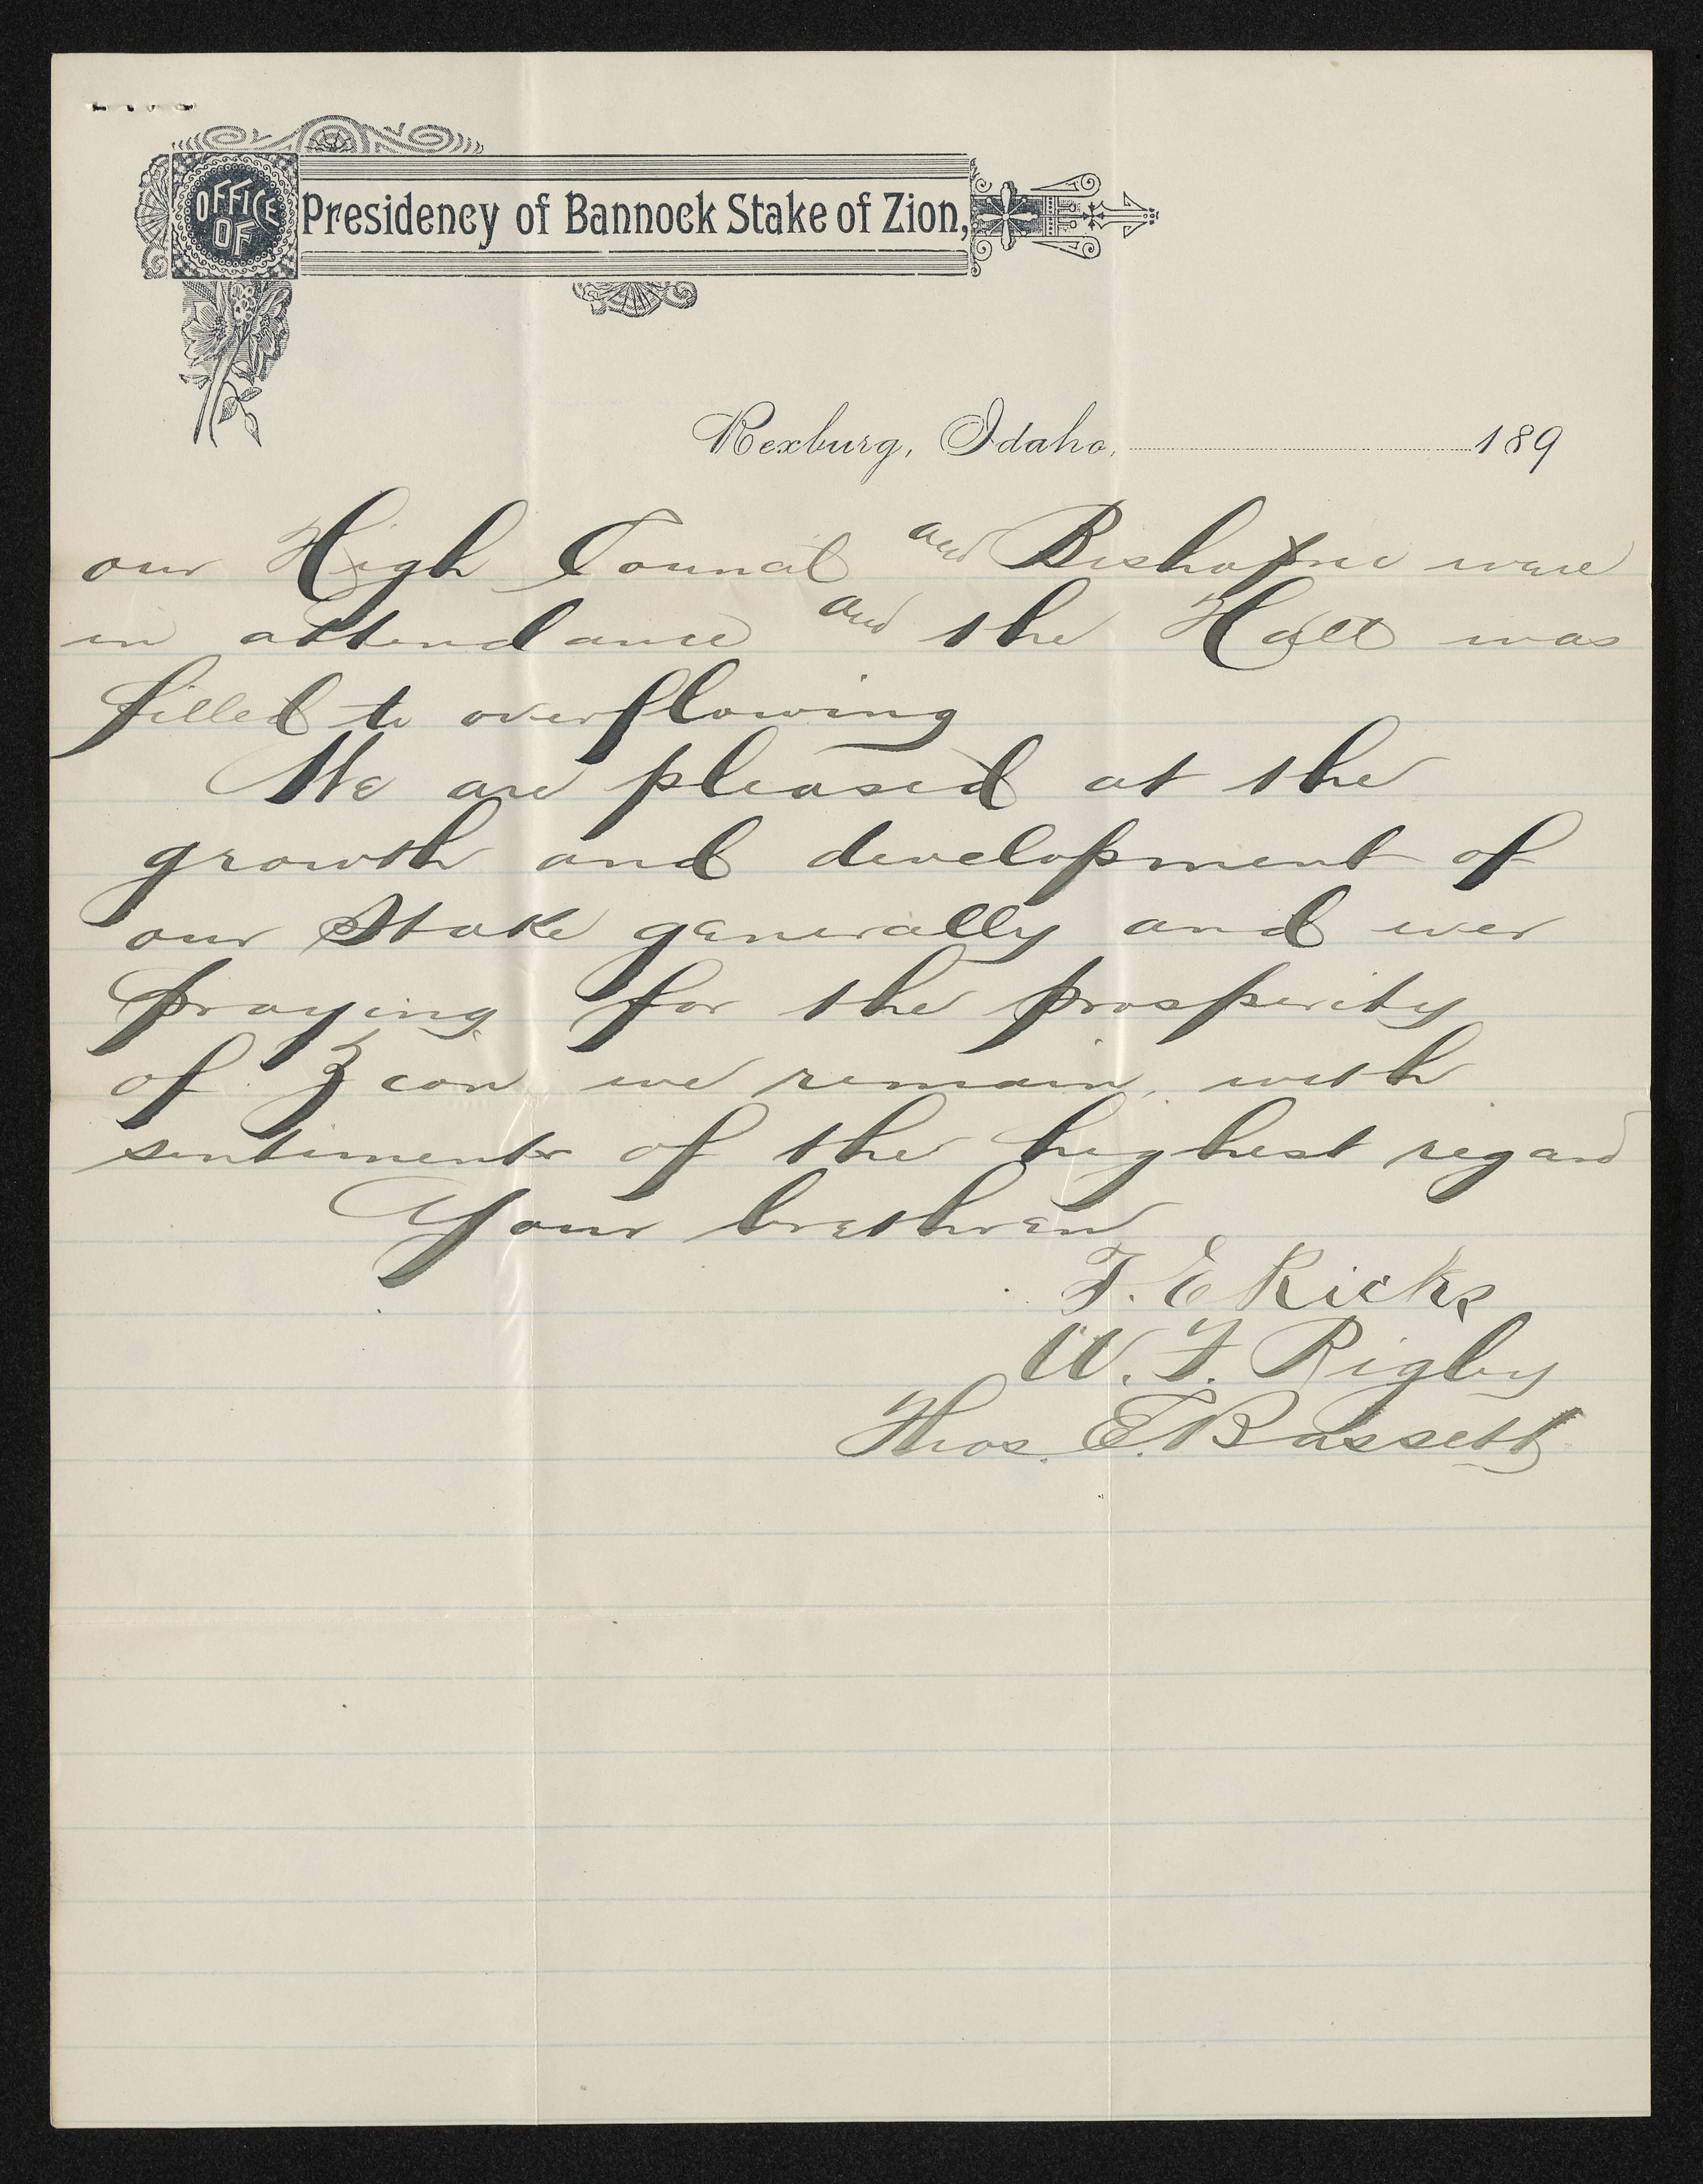 OFFICE OF Presidency of Bannock Stake of Zion,
Rexburg, Idaho, 189
our High Council and Bishopric ware
in attendance and the Hall was
filled to overflowing
We are pleased at the
growth and development of
our Stake generally and ever
praying for the prosperity
of Zion we remain, with
sentiments of the highest regard
Your brethren
T. E Ricks
W. F. Rigby
Thos. E. Bassett